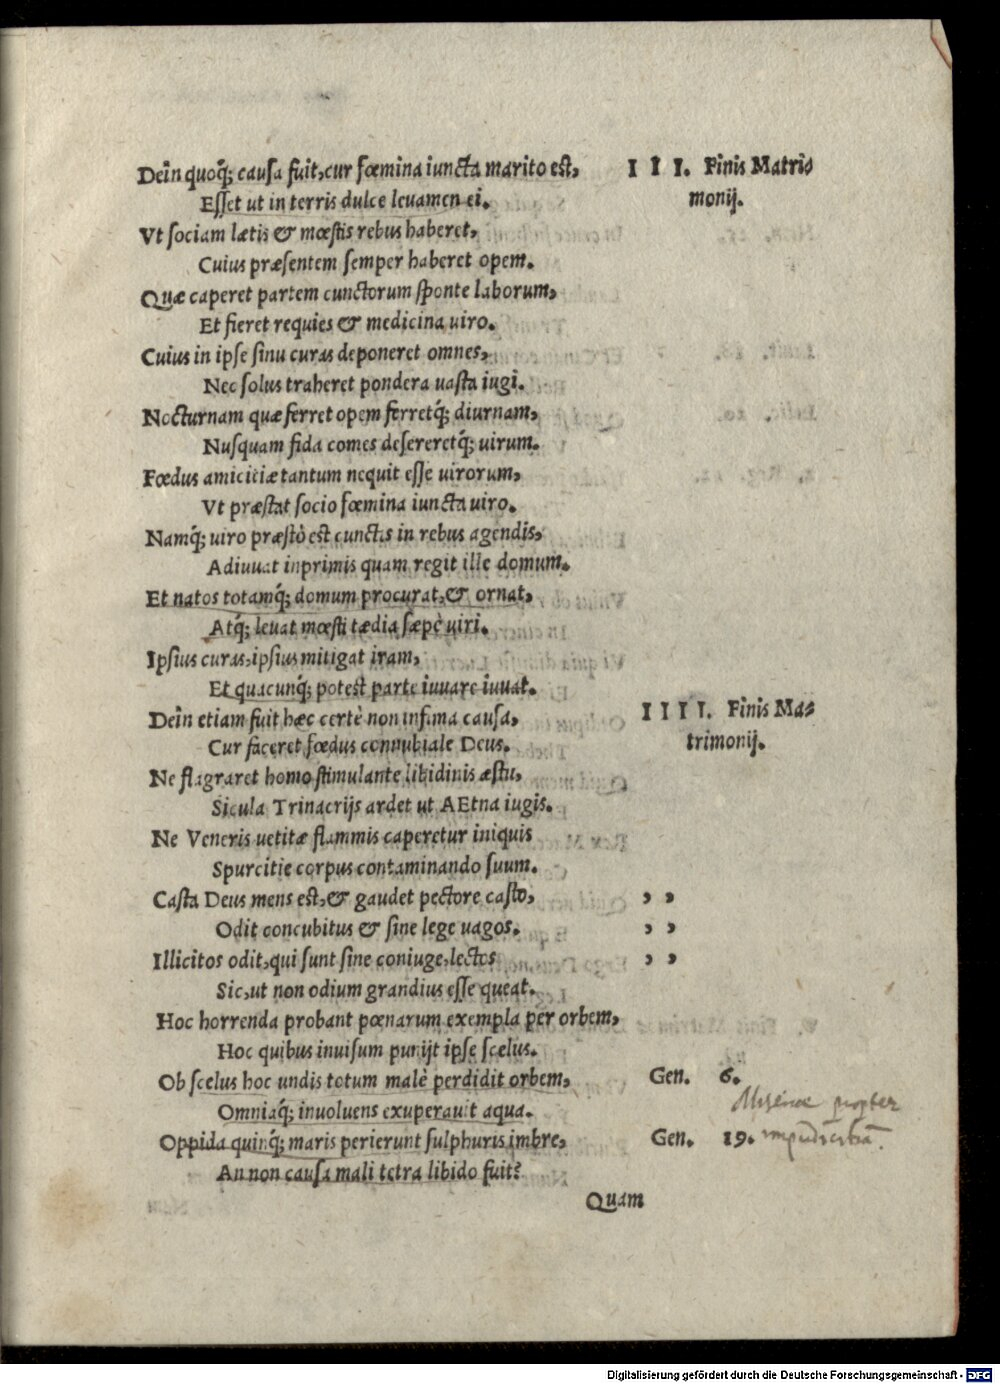 Dein quoq́; causa fuit, cur fœmina iuncta marito est, I I I. Finis Matri-
Esset ut in terris dulce leuamen ei. monij.
Vt sociam lætis & mœstis rebus haberet,
Cuius præsentem semper haberet opem.
Quæ caperet partem cunctorum sponte laborum,
Et fieret requies & medicina uiro.
Cuius in ipse sinu curas deponeret omnes,
Nec solus traheret pondera uasta iugi.
Nocturnam quæ ferret opem ferretq́; diurnam,
Nusquam fida comes desereretq́; uirum.
Fœdus amicitiæ tantum nequit esse uirorum,
Vt præstat socio fœmina iuncta uiro.
Namq́; uiro præstò est cunctis in rebus agendis,
Adiuuat inprimis quam regit ille domum.
Et natos totamq́; domum procurat, & ornat,
Atq́; leuat mœsti tædia sæpè uiri.
Ipsius curas, ipsius mitigat iram,
Et quacunq́; potest parte iuuare iuuat.
Dein etiam fuit hæc certè non infima causa, I I I I. Finis Ma-
Cur faceret fœdus connubiale Deus. trimonij.
Ne flagraret homo stimulante libidinis æstu,
Sicula Trinacrijs ardet ut AEtna iugis.
Ne Veneris uetitæ flammis caperetur iniquis
Spurcitie corpus contaminando suum.
Casta Deus mens est, & gaudet pectore casto, , ,
Odit concubitus & sine lege uagos. , ,
Illicitos odit, qui sunt sine coniuge, lectos , ,
Sic, ut non odium grandius esse queat.
Hoc horrenda probant pœnarum exempla per orbem,
Hoc quibus inuisum punijt ipse scelus.
Ob scelus hoc undis totum malè perdidit orbem, Gen. 6.
Omniaq́; inuoluens exuperauit aqua. propter
Oppida quinq́; maris perierunt sulphuris imbre, Gen. 19.
An non causa mali tetra libido fuit?
Quam
Digitalisierung gefördert durch die Deutsche Forschungsgemeinschaft - DFG